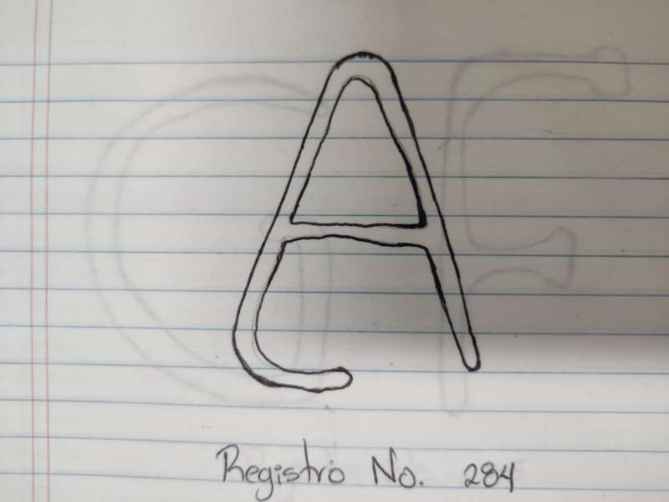 A
Registro No. 284